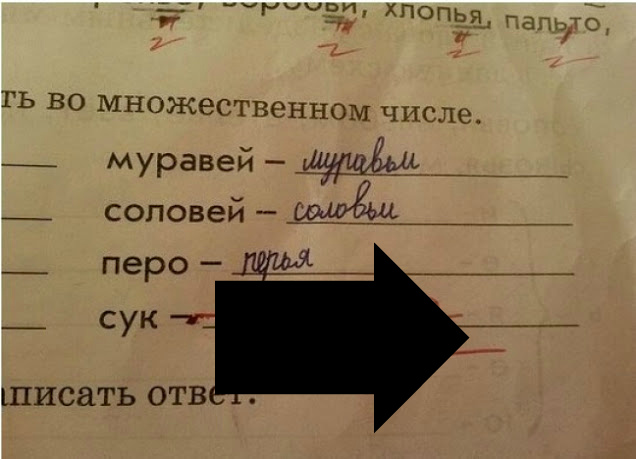 воробьи, хлопья, пальто,
ть во множественном числе.
муравей – муравьи
соловей – соловьи
перо – перья
сук –
аписать ответ.